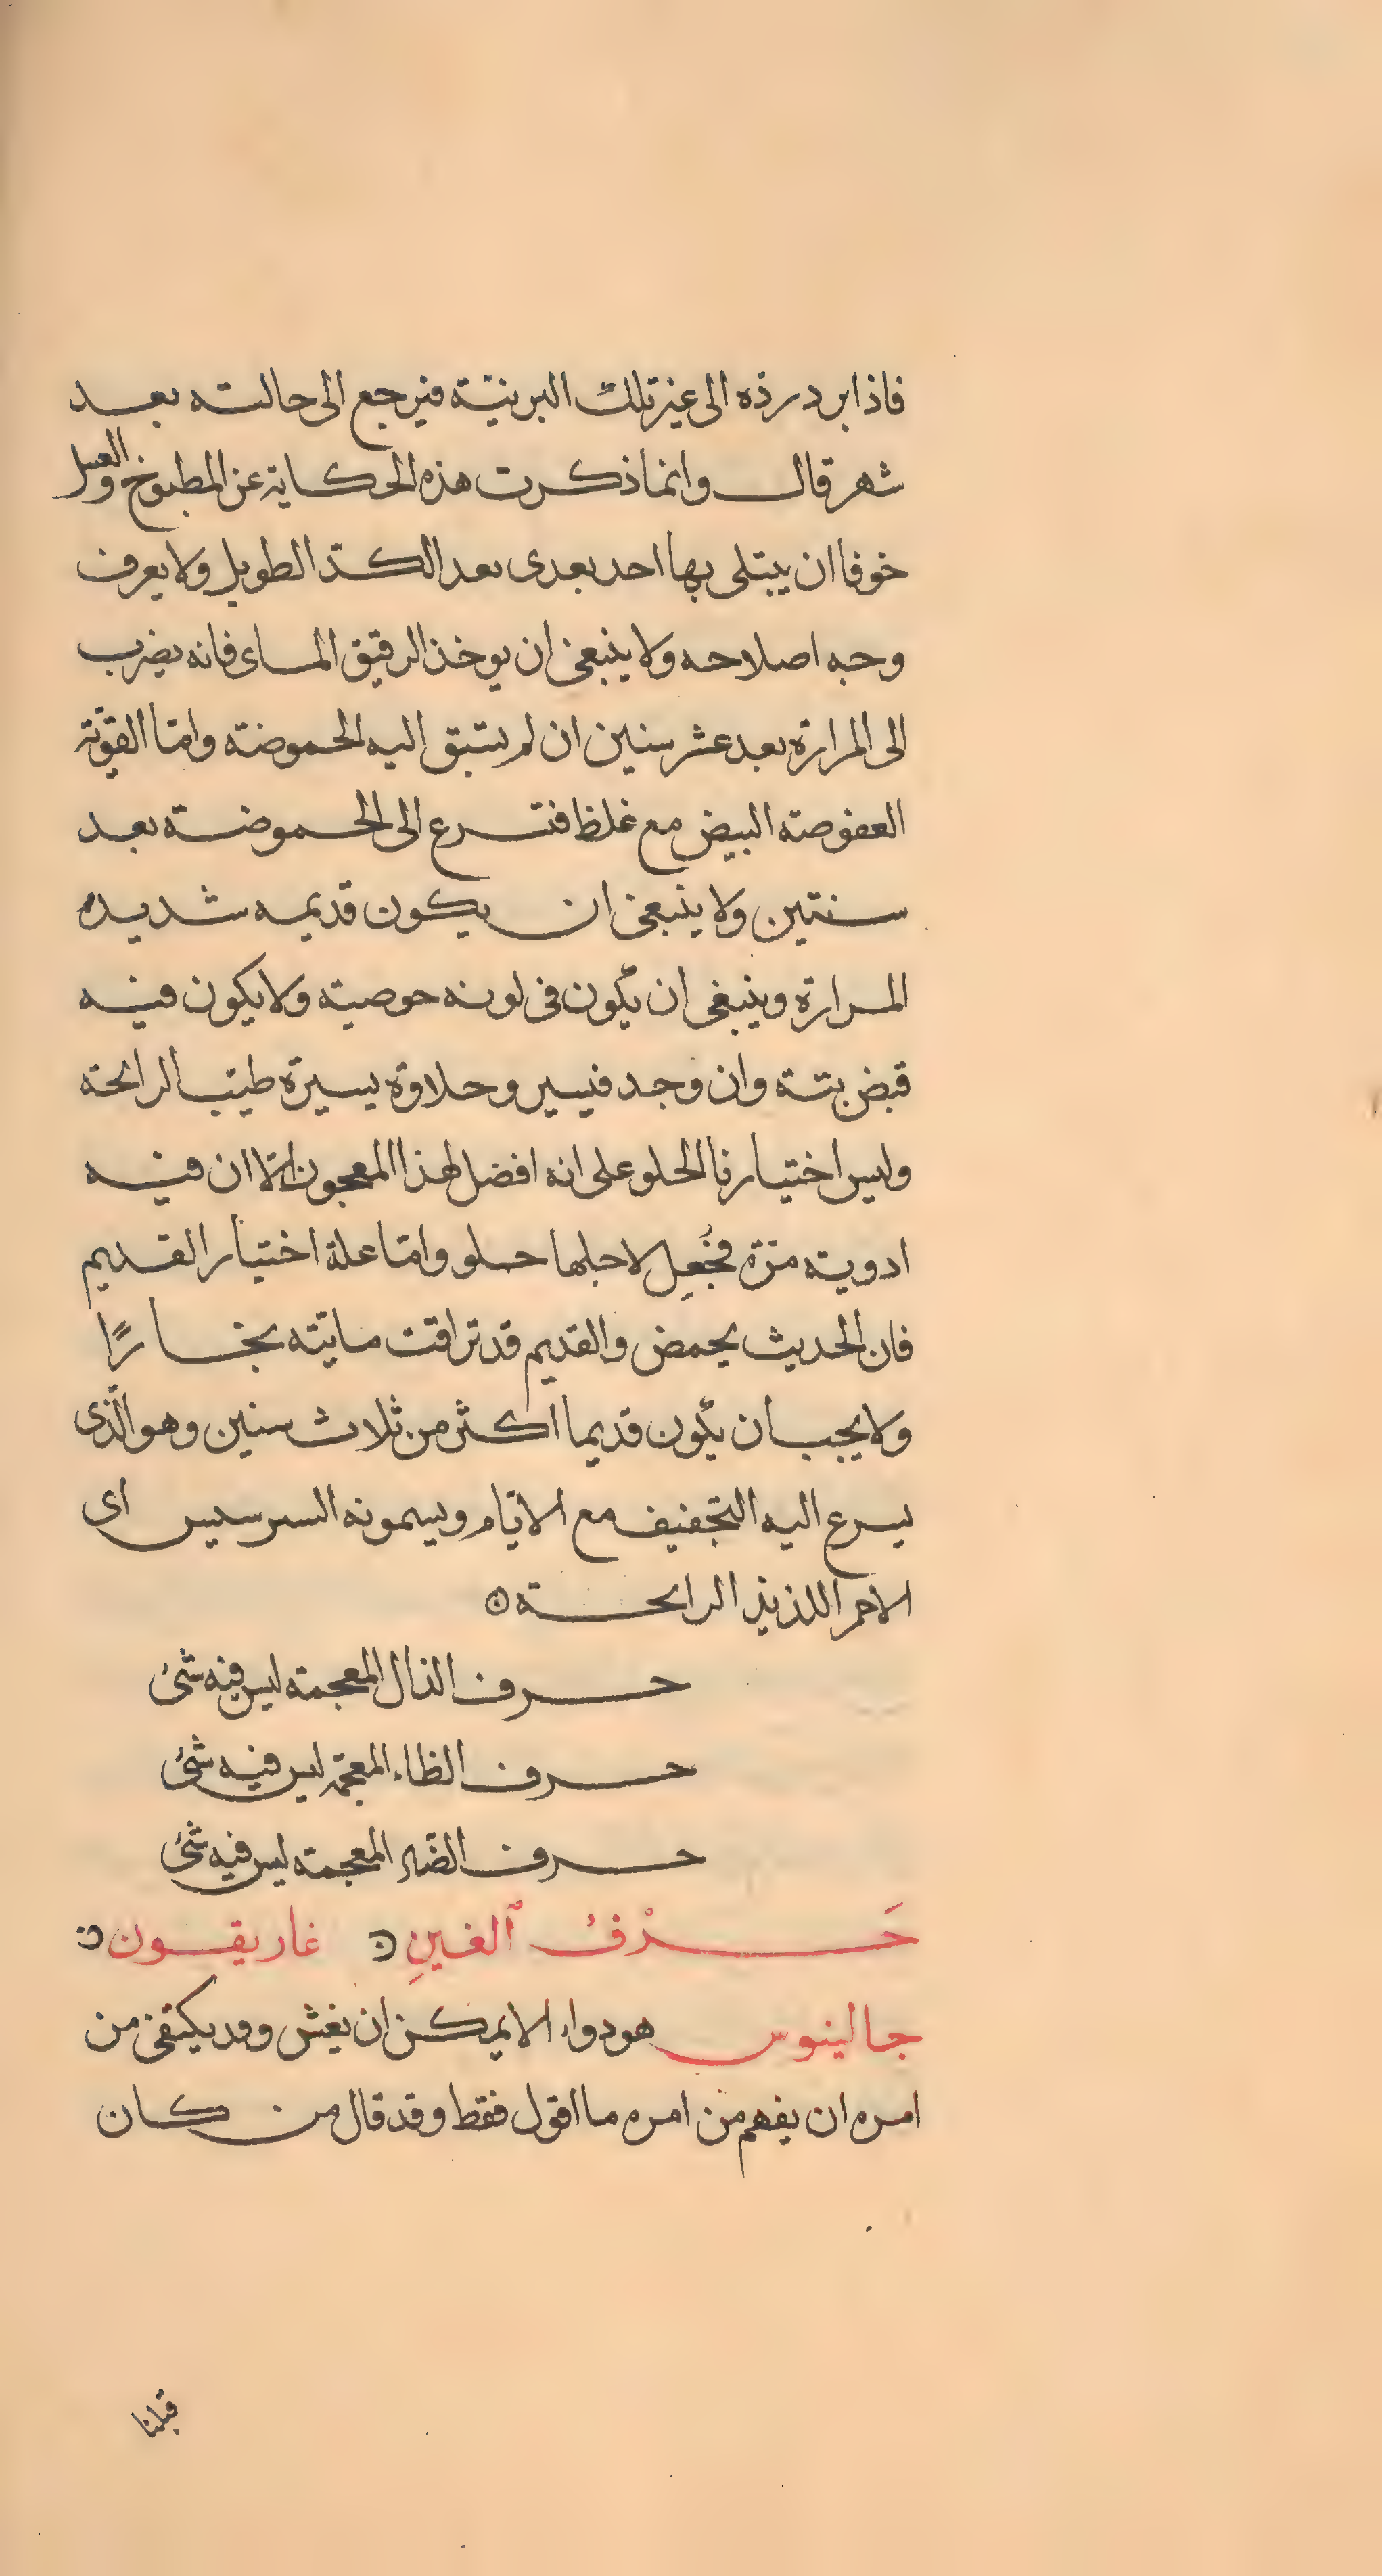 فاذا برد رذه الى غير تلك البرنيّة فيرجع الى حالته بعد
شهر قال وانما ذكرت هذه الحكاية عن المطبوخ والعسل
خوفا ان يبتلى بها احد بعدى بعد الكدّ الطويل ولا يعرف
وجه اصلاحه ولا ينبغى ان يوخذ الرقيق الماى فانه يضرب
الى المرارة بعد عشر سنين ان لم يستبق اليه الحموضة وامّا القويّة
العفوصة البيض مع غلظ فتسرع الى الحموضة بعد
سنتين ولا ينبغى ان يكون قديمه شديده
المرارة وينبغى ان يكون فى لونه حوصية ولا يكون فيه
قبض بتة وان وجد فيسير وحلاوة يسيرة طيّب الرائحة
وليس اختيارنا الحلو على انه افضل لهذا المعجون الّا ان فيه
ادوية مرّة فجُعِل لاجلها حلو وامّا علة اختيار القديم
فان الحديث يحمض والقديم قد تراقت مائيّته بخارًا
ولا يجب ان يكون قديما اكثر من ثلاث سنين وهو الّذى
يسرع اليه التجفيف مع الايّام ويسمونه السرسيس اى
الاحمر اللذيذ الرائحة
حرف الذال المعجمة ليس فيه شئ
حرف الظاء المعجمة ليس فيه شئ
حرف الضّاد المعجمة ليس فيه شئ
حَرْفُ ٱلغينِ غاريقون
جالينوس هو دواء لا يمكن ان يغش وقد يكتفى من
امره ان يفهم من امره ما اقول فقط وقد قال من كان
قبلنا